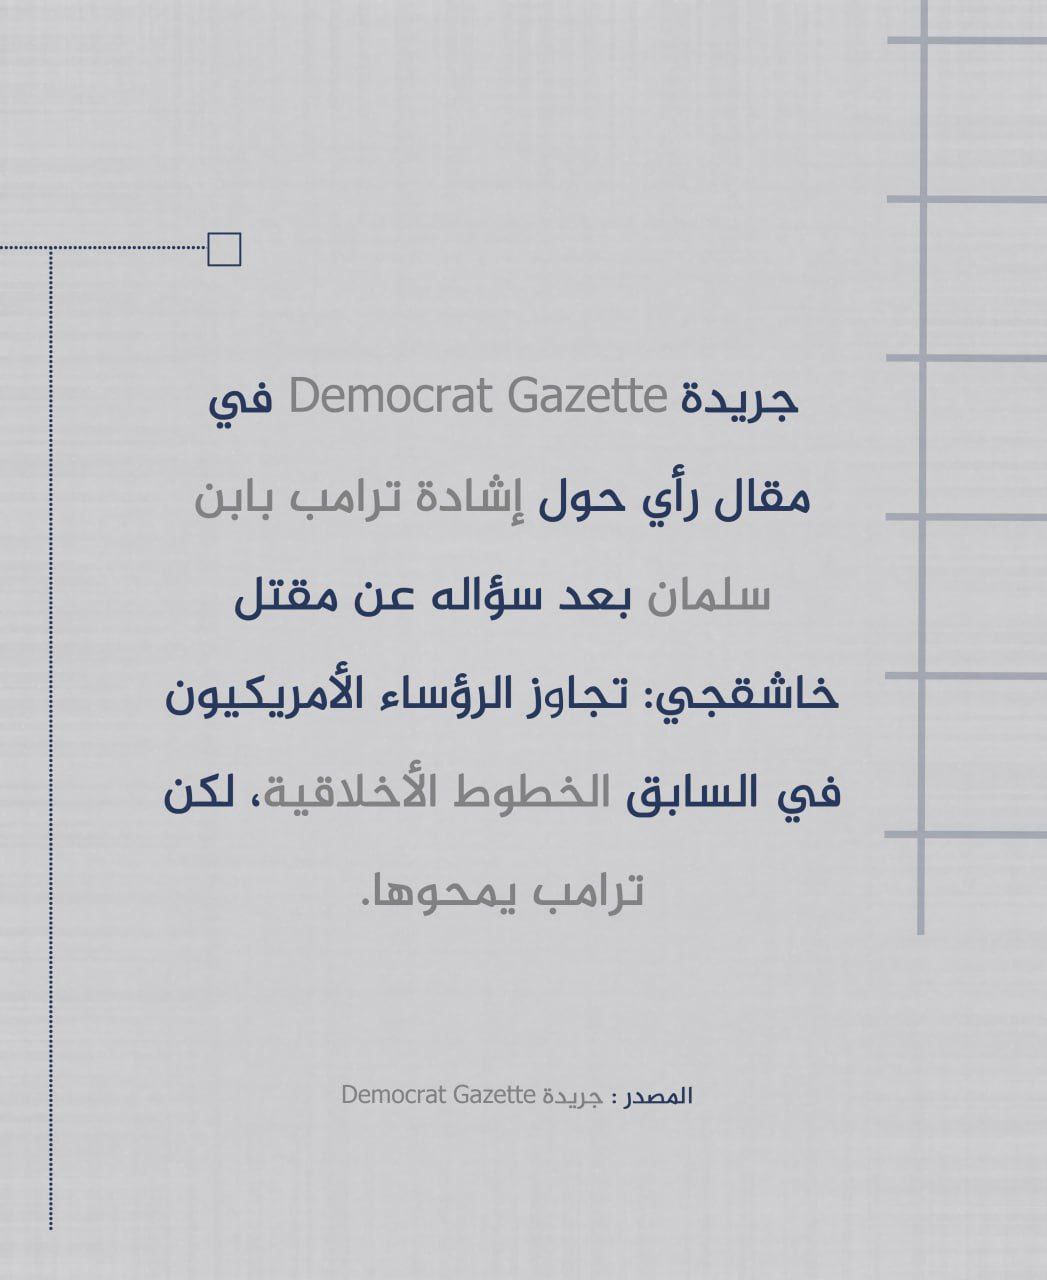 جريدة Democrat Gazette في
مقال رأي حول إشادة ترامب بابن
سلمان بعد سؤاله عن مقتل
خاشقجي: تجاوز الرؤساء الأمريكيون
في السابق الخطوط الأخلاقية، لكن
ترامب يمحوها.
المصدر : جريدة Democrat Gazette